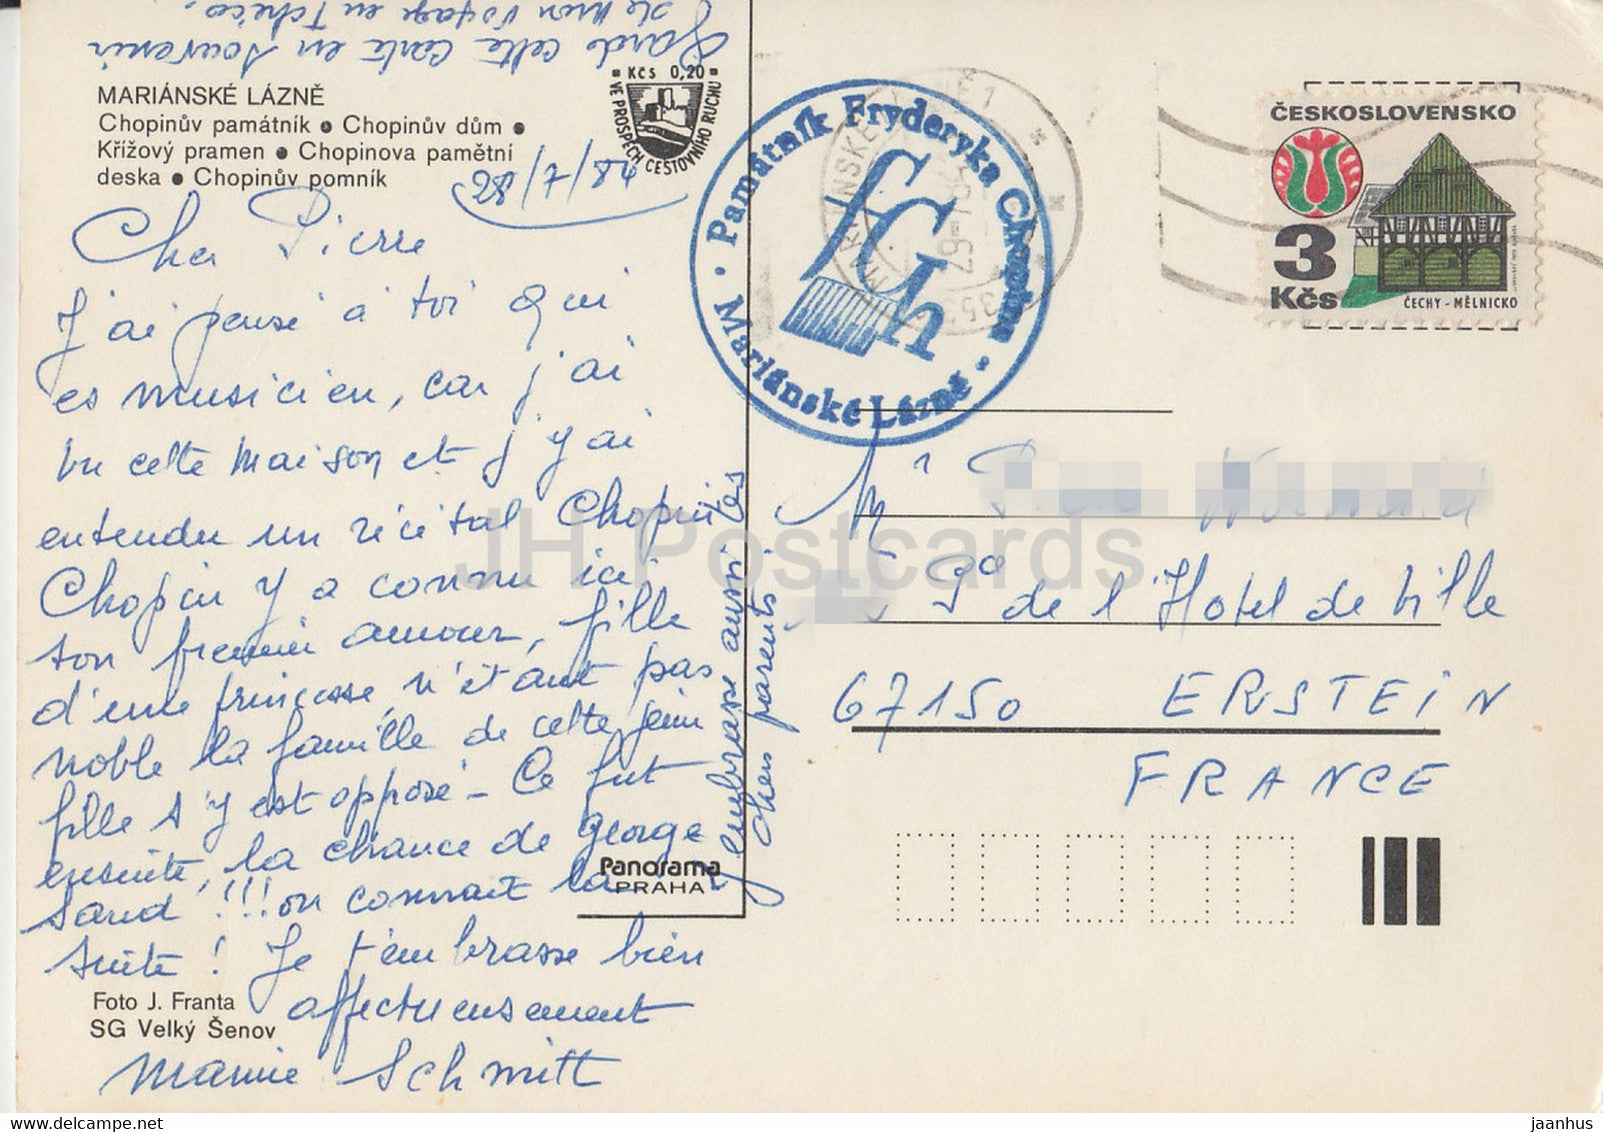 Garde cette carte en souvenir
de mon voyage en Tchéco.
MARIÁNSKÉ LÁZNĚ
Chopinův památník • Chopinův dům •
Křížový pramen • Chopinova pamětní
deska • Chopinův pomník
Kčs 0,20
VE PROSPĚCH CESTOVNÍHO RUCHU
28/7/
Cher Pierre
J'ai pensé à toi qui
es musicien, car j'ai
vu cette maison et j'y ai
entendu un récital Chopin
Chopin y a connu ici
son premier amour, fille
d'une princesse, n'étant pas
noble la famille de cette jeune
fille s'y est opposé - Ce fut
ensuite, la chance de george
sand !!! on connait la
suite ! Je t'embrasse bien
affectueusement
Mamie Schmitt
J'embrasse aussi tes
chers parents
Panorama
PRAHA
Foto J. Franta
SG Velký Šenov
Památník Fryderyka Chopina
Mariánské Lázně
fCh
ČESKOSLOVENSKO
3
Kčs
ČECHY - MĚLNICKO
Mr
de l'Hotel de Ville
67150 ERSTEIN
FRANCE
JH Postcards
delcampe.net
jaanhus